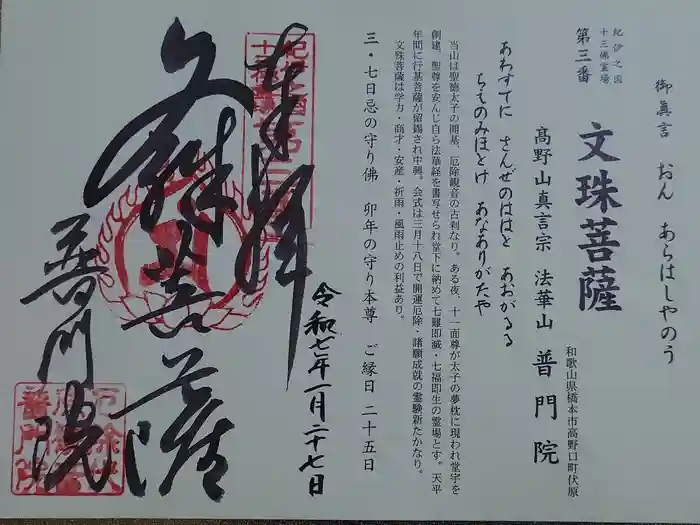 御眞言　おん　あらはしやのう
紀伊之国
十三佛霊場
第三番
文珠菩薩
和歌山県橋本市高野口町伏原
髙野山真言宗　法華山　普門院
あわすてに　さんぜのははと　あおがるる
ちものみほとけ　あなありがたや
当山は聖徳太子の開基、厄除観音の古刹なり。ある夜、十一面尊が太子の夢枕に現われ堂宇を
創建、聖尊を安んじ自ら法華経を書写せられ堂下に納めて七難即滅・七福即生の霊場とす。天平
年間に行基菩薩が留錫され中興。会式は三月十八日で開運厄除・諸願成就の霊験新たかなり。
文殊菩薩は学力・商才・安産・祈雨・風雨止めの利益あり。
三・七日忌の守り佛　卯年の守り本尊　ご縁日　二十五日
奉拝
令和七年一月二十七日
文殊菩薩
普門院